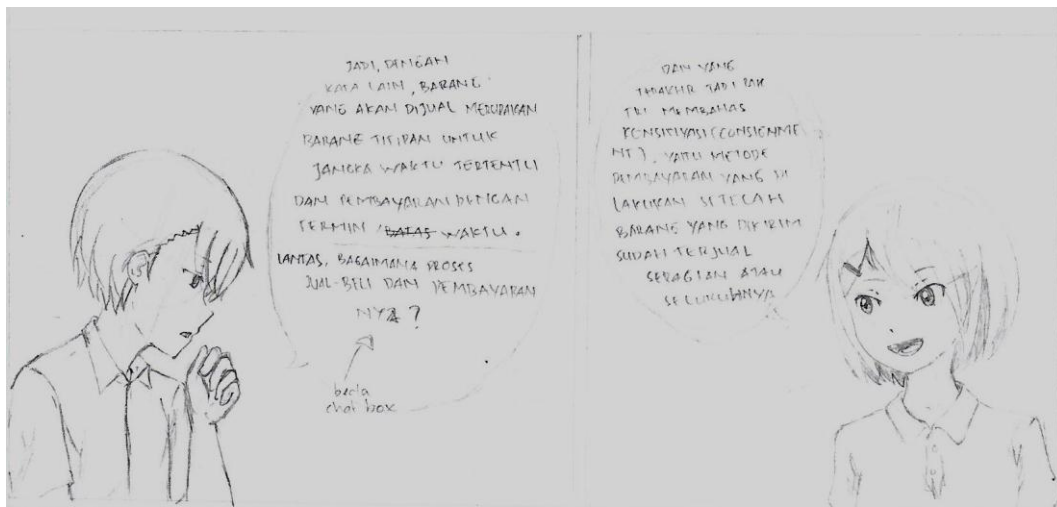 JADI, DENGAN
KATA LAIN, BARANG
YANG AKAN DIJUAL MERUPAKAN
BARANG TITIPAN UNTUK
JANGKA WAKTU TERTENTU
DAN PEMBAYARAN DENGAN
TERMIN / BATAS WAKTU.
LANTAS, BAGAIMANA PROSES
JUAL-BELI DAN PEMBAYARAN
NYA?
beda
chat box
DAN YANG
TERAKHIR TADI PAK
TRI MEMBAHAS
KONSINYASI (CONSIGNME
NT), YAITU METODE
PEMBAYARAN YANG DI
LAKUKAN SETELAH
BARANG YANG DIKIRIM
SUDAH TERJUAL
SEBAGIAN ATAU
SELURUHNYA